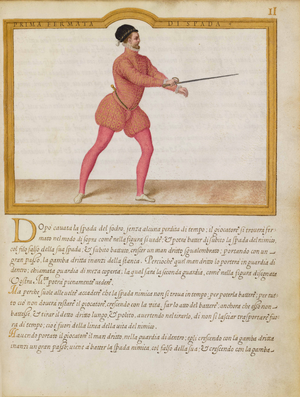 11
PRIMA FERMATA DI SPADA
Dopo cavata la spada del fodro, senza alcuna perdita di tempo; il giocatore si trovera fer-
mato nel modo di sopra come nella figura si vede. & potra batter di subito la spada del nimico,
col filo falso della sua spada; & subito battuto, tirar un man dritto sgualembrato; portando con un
gran passo, la gamba dritta inanti della stanca. Percioche quel man dritto lo portera in guardia di
dentro, chiamata guardia di meza coperta; la qual sara la seconda guardia, come nella figura disignata
potrai pienamente vedere.
Ma perche suole alle volte accadere che la spada nimica non si trova in tempo, per poterla battere; per tut-
to cio non dovra restare il giocatore crescendo con la vita, far lo atto del battere, anchora che esso non
battesse & tirar il detto dritto lungo & polito, avertendo nel tirarlo, di non si lasciar trasportare fuo-
ra di tempo, cioe fuori della linea della vita del nimico.
Havendo portato il giocatore il man dritto, nella guardia di dentro; egli crescendo con la gamba dritta
inanti un gran passo; viene a batter la spada nimica col falso della sua; & crescendo con la gamba